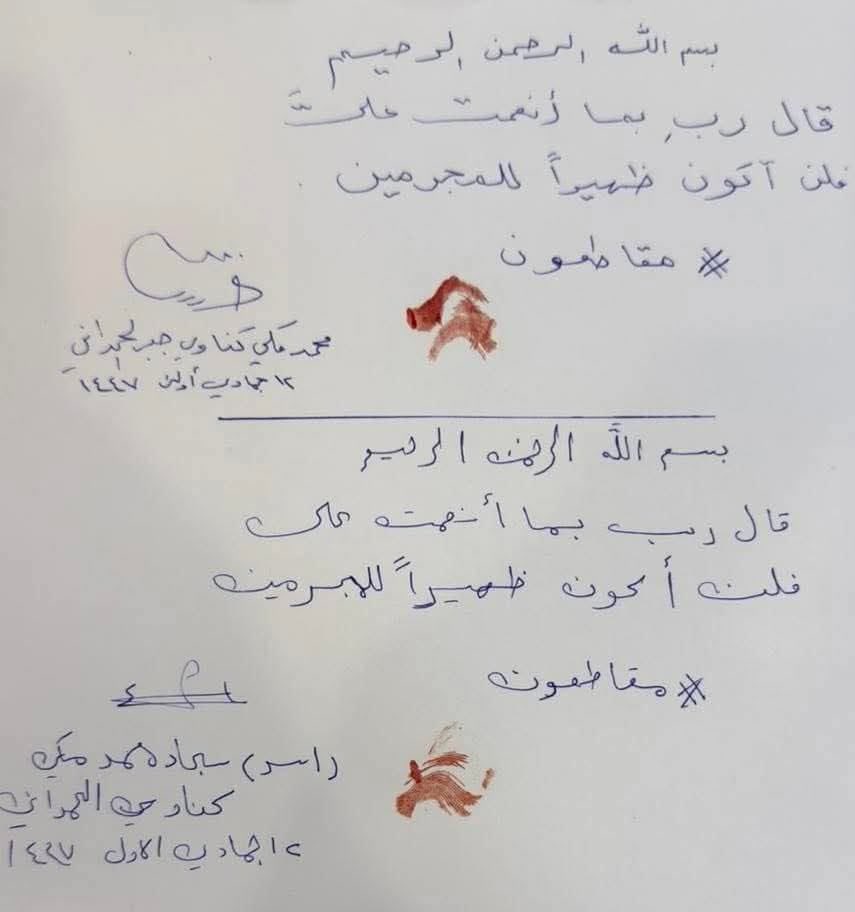 بسم الله الرحمن الرحيم
قال ربِ بما أنعمت عليَّ
فلن أكون ظهيراً للمجرمين .
# مقاطعون
محمد مكي كناوي جبر الحمداني
١٢ جمادي أولى ١٤٤٧
بسم الله الرحمن الرحيم
قال رب بما أنعمت على
فلن أكون ظهيراً للمجرمين
# مقاطعون
سجاد محمد مكي
كناوي الحمداني
١٢ جمادي الاول ١٤٤٧